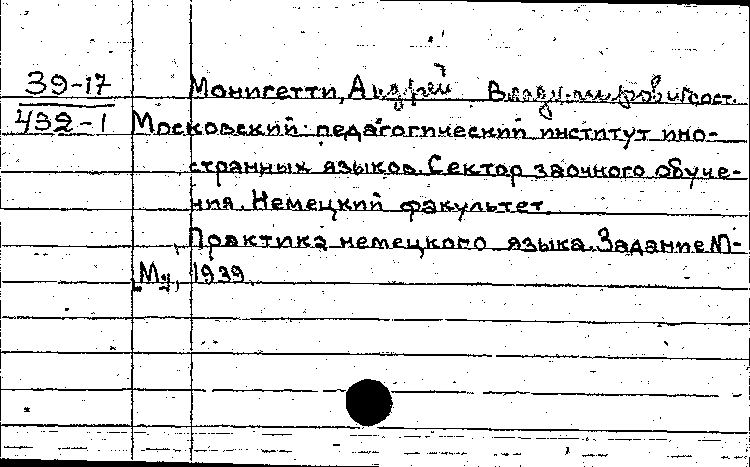 39-17 Монигетти, Андрей Владимирович сост.
432-1 Московский педагогический институт ино-
странных языков. Сектор заочного обуче-
ния. Немецкий факультет.
Практика немецкого языка. Задание
М., 1939.